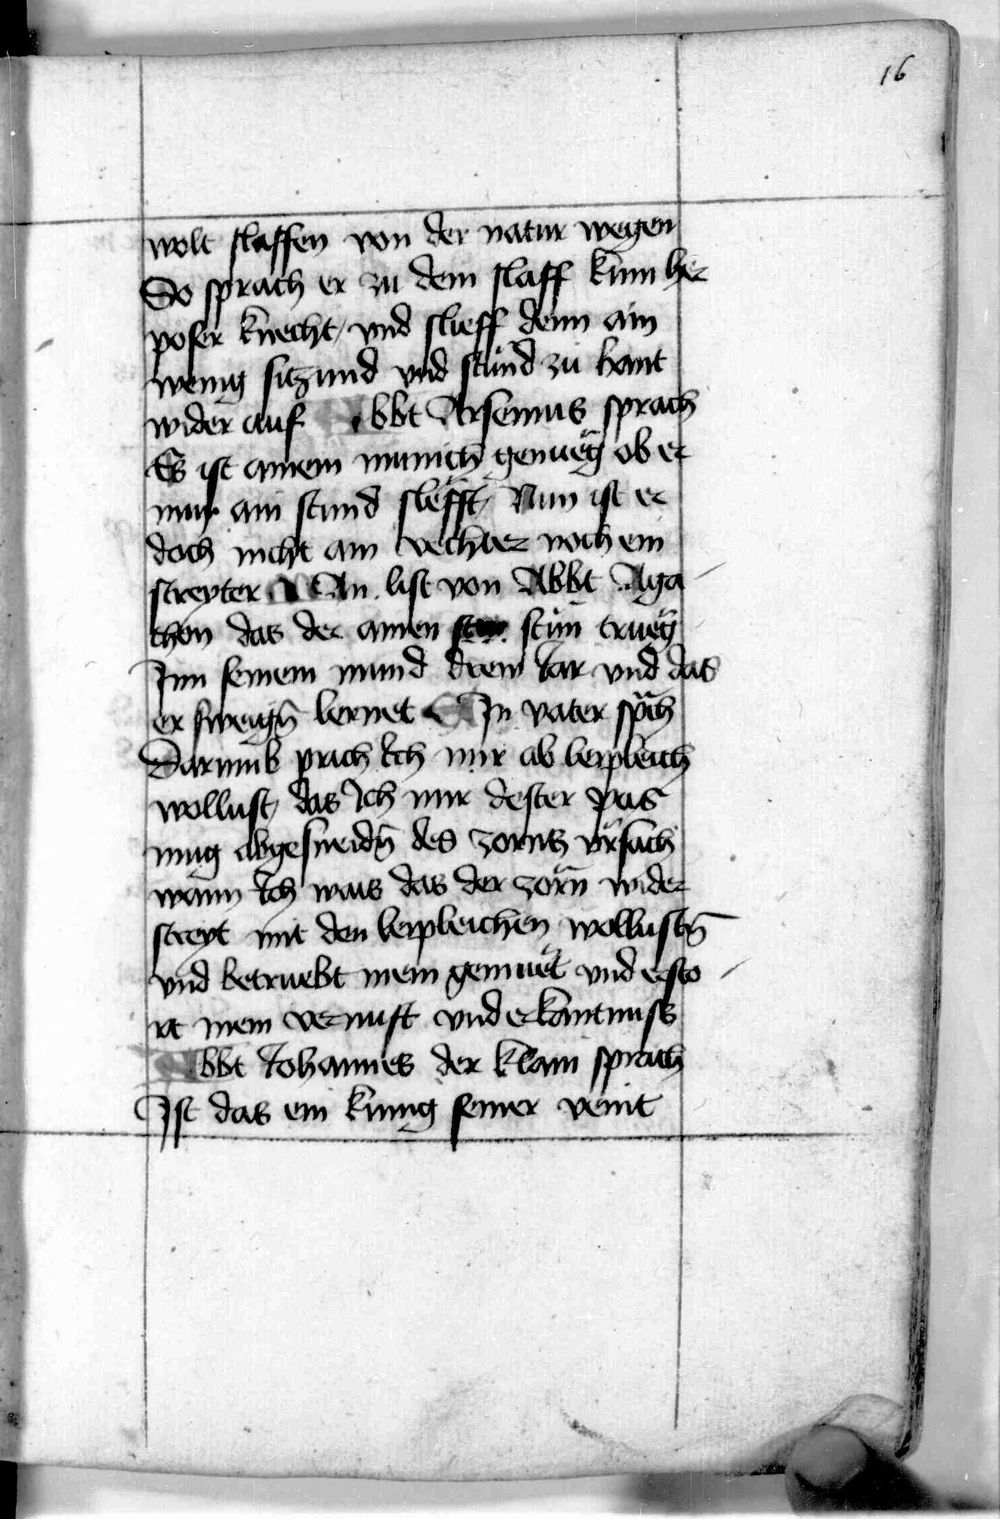 16
wolt slaffen von der natur wegen
So sprach er zu dem slaff kum her
poser knecht / vnd slieff denn ain
wenig sitzund vnd stůnd zu hant
wider auf Abbt Arsenius sprach
Es ist ainem munich genueg ob er
nur ain stund slefft / Nun ist er
doch nicht ain vechter noch ein
streyter Man list von Abbt Aga
thon das der ainen stain trueg
Inn seinem mund drew Iar vnd das
er sweigñ lernet Ain vater sprach
Darumb prich Ich mir ab leipleich
wollust / das Ich mir dester pas
mug abgesneidñ des zorns vrsach
wann Ich wais das der zorn wider
streyt mit den leipleichen wollustñ
vnd betruebt mein gemuet vnd ersto
rt mein vernuft vnd erkantnuss
Abbt Iohannes der klain sprach
Ist das ein kunig seiner veint